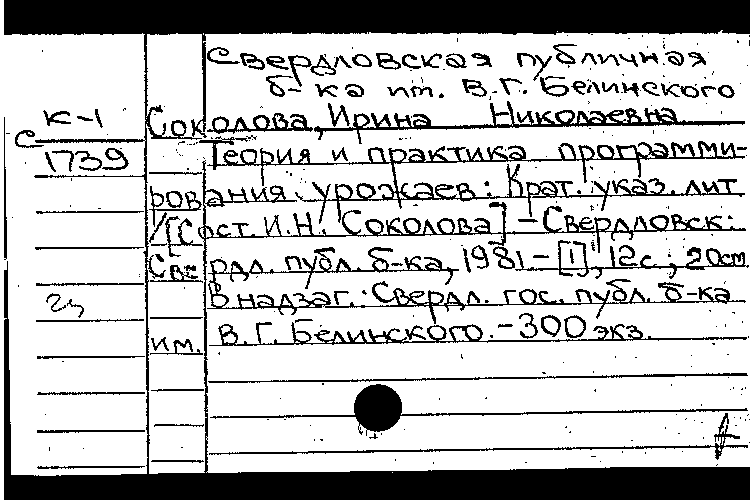 Свердловская публичная
б-ка им. В.Г. Белинского
К-1
Соколова, Ирина Николаевна
С
1739
Теория и практика программи-
рования урожаев: Крат. указ. лит.
/[Сост. И.Н. Соколова] – Свердловск:
Свердл. публ. б-ка, 1981 – [1], 12 с.; 20 см
В надзаг.: Свердл. гос. публ. б-ка
им. В.Г. Белинского. – 300 экз.